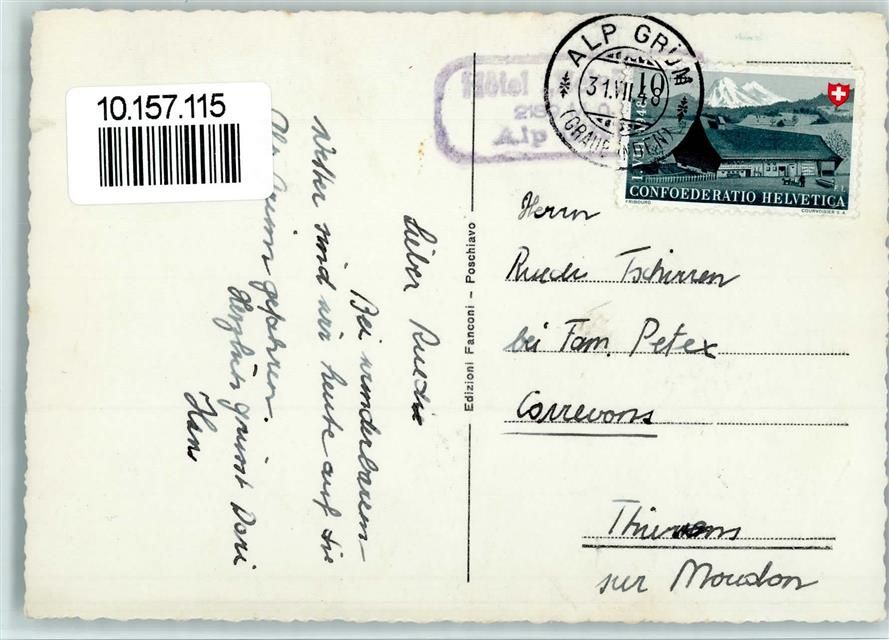 10.157.115
Hôtel
Alp
ALP GRÜM
31.VII.48
(GRAUBÜNDEN)
10
CONFOEDERATIO HELVETICA
FRIBOURG
COURVOISIER S.A.
Edizioni Fanconi - Poschiavo
Lieber Ruedi
Bei wunderbarem
Wetter sind wir heute auf die
Alp Grüm gefahren.
Herzlich grüsst Dori
Hans
Herrn
Ruedi Tschirren
bei Fam. Petex
Correvons
Thierrens
sur Moudon